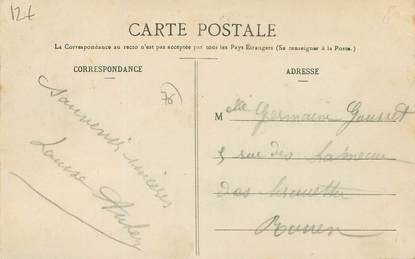 12€
CARTE POSTALE
La Correspondance au recto n'est pas acceptée par tous les Pays Étrangers (Se renseigner à la Poste.)
CORRESPONDANCE
76
Souvenirs sincères
Louise
ADRESSE
Melle Germaine Gousset
5 rue des
Rouen